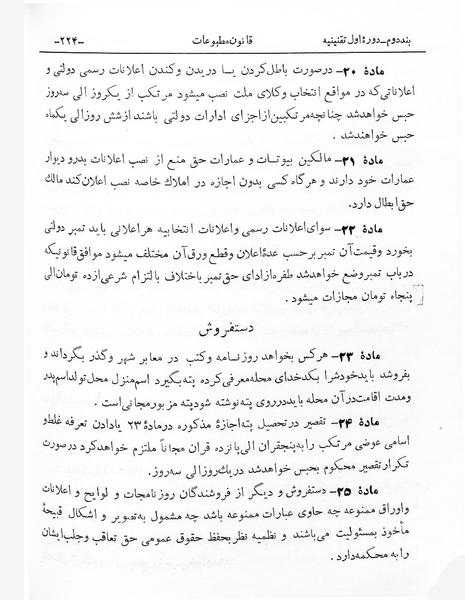 بند دوم ـ دورهٔ اول تقنینیه قانون مطبوعات -۲۲۴-
مادهٔ ۲۰- درصورت باطل کردن یا دریدن و کندن اعلانات رسمی دولتی و
اعلاناتی که در مواقع انتخاب وکلای ملت نصب میشود مرتکب از یکروز الی سه روز
حبس خواهد شد چنانچه مرتکبین از اجزای ادارات دولتی باشند از شش روز الی یکماه
حبس خواهند شد.
مادهٔ ۲۱- مالکین بیوتات و عمارات حق منع از نصب اعلانات بدر و دیوار
عمارات خود دارند و هرگاه کسی بدون اجازه در املاک خاصه نصب اعلان کند مالک
حق ابطال دارد.
مادهٔ ۲۲- سوای اعلانات رسمی و اعلانات انتخابیه هر اعلانی باید تمبر دولتی
بخورد و قیمت آن تمبر بر حسب عدهٔ اعلان و قطع ورق آن مختلف میشود موافق قانونیکه
در باب تمبر وضع خواهد شد طفره از ادای حق تمبر باختلاف با التزام شرعی از ده تومان الی
پنجاه تومان مجازات میشود.
دستفروش
مادهٔ ۲۳- هرکس بخواهد روزنامه و کتب در معابر شهر و گذر بگرداند و
بفروشد باید خود شرا بکدخدای محله معرفی کرده پته بگیرد اسم منزل محل تولد اسم پدر
و مدت اقامت در آن محله باید در روی پته نوشته شود پته مزبور مجانی است.
مادهٔ ۲۴- تقصیر در تحصیل پته اجازهٔ مذکوره در مادهٔ ۲۳ یا دادن تعرفه غلط و
اسامی عوضی مرتکب را به پنجقران الی پانزده قران مجاناً ملتزم خواهد کرد در صورت
تکرار تقصیر محکوم بحبس خواهد شد در یک روز الی سه روز.
مادهٔ ۲۵- دستفروش و دیگر از فروشندگان روزنامجات و لوایح و اعلانات
و اوراق ممنوعه چه حاوی عبارات ممنوعه باشد چه مشمول به تصویر و اشکال قبیحهٔ
مأخوذ بمسئولیت می‌باشند و نظمیه نظر بحفظ حقوق عمومی حق تعاقب و جلب ایشان
را به محکمه دارد.